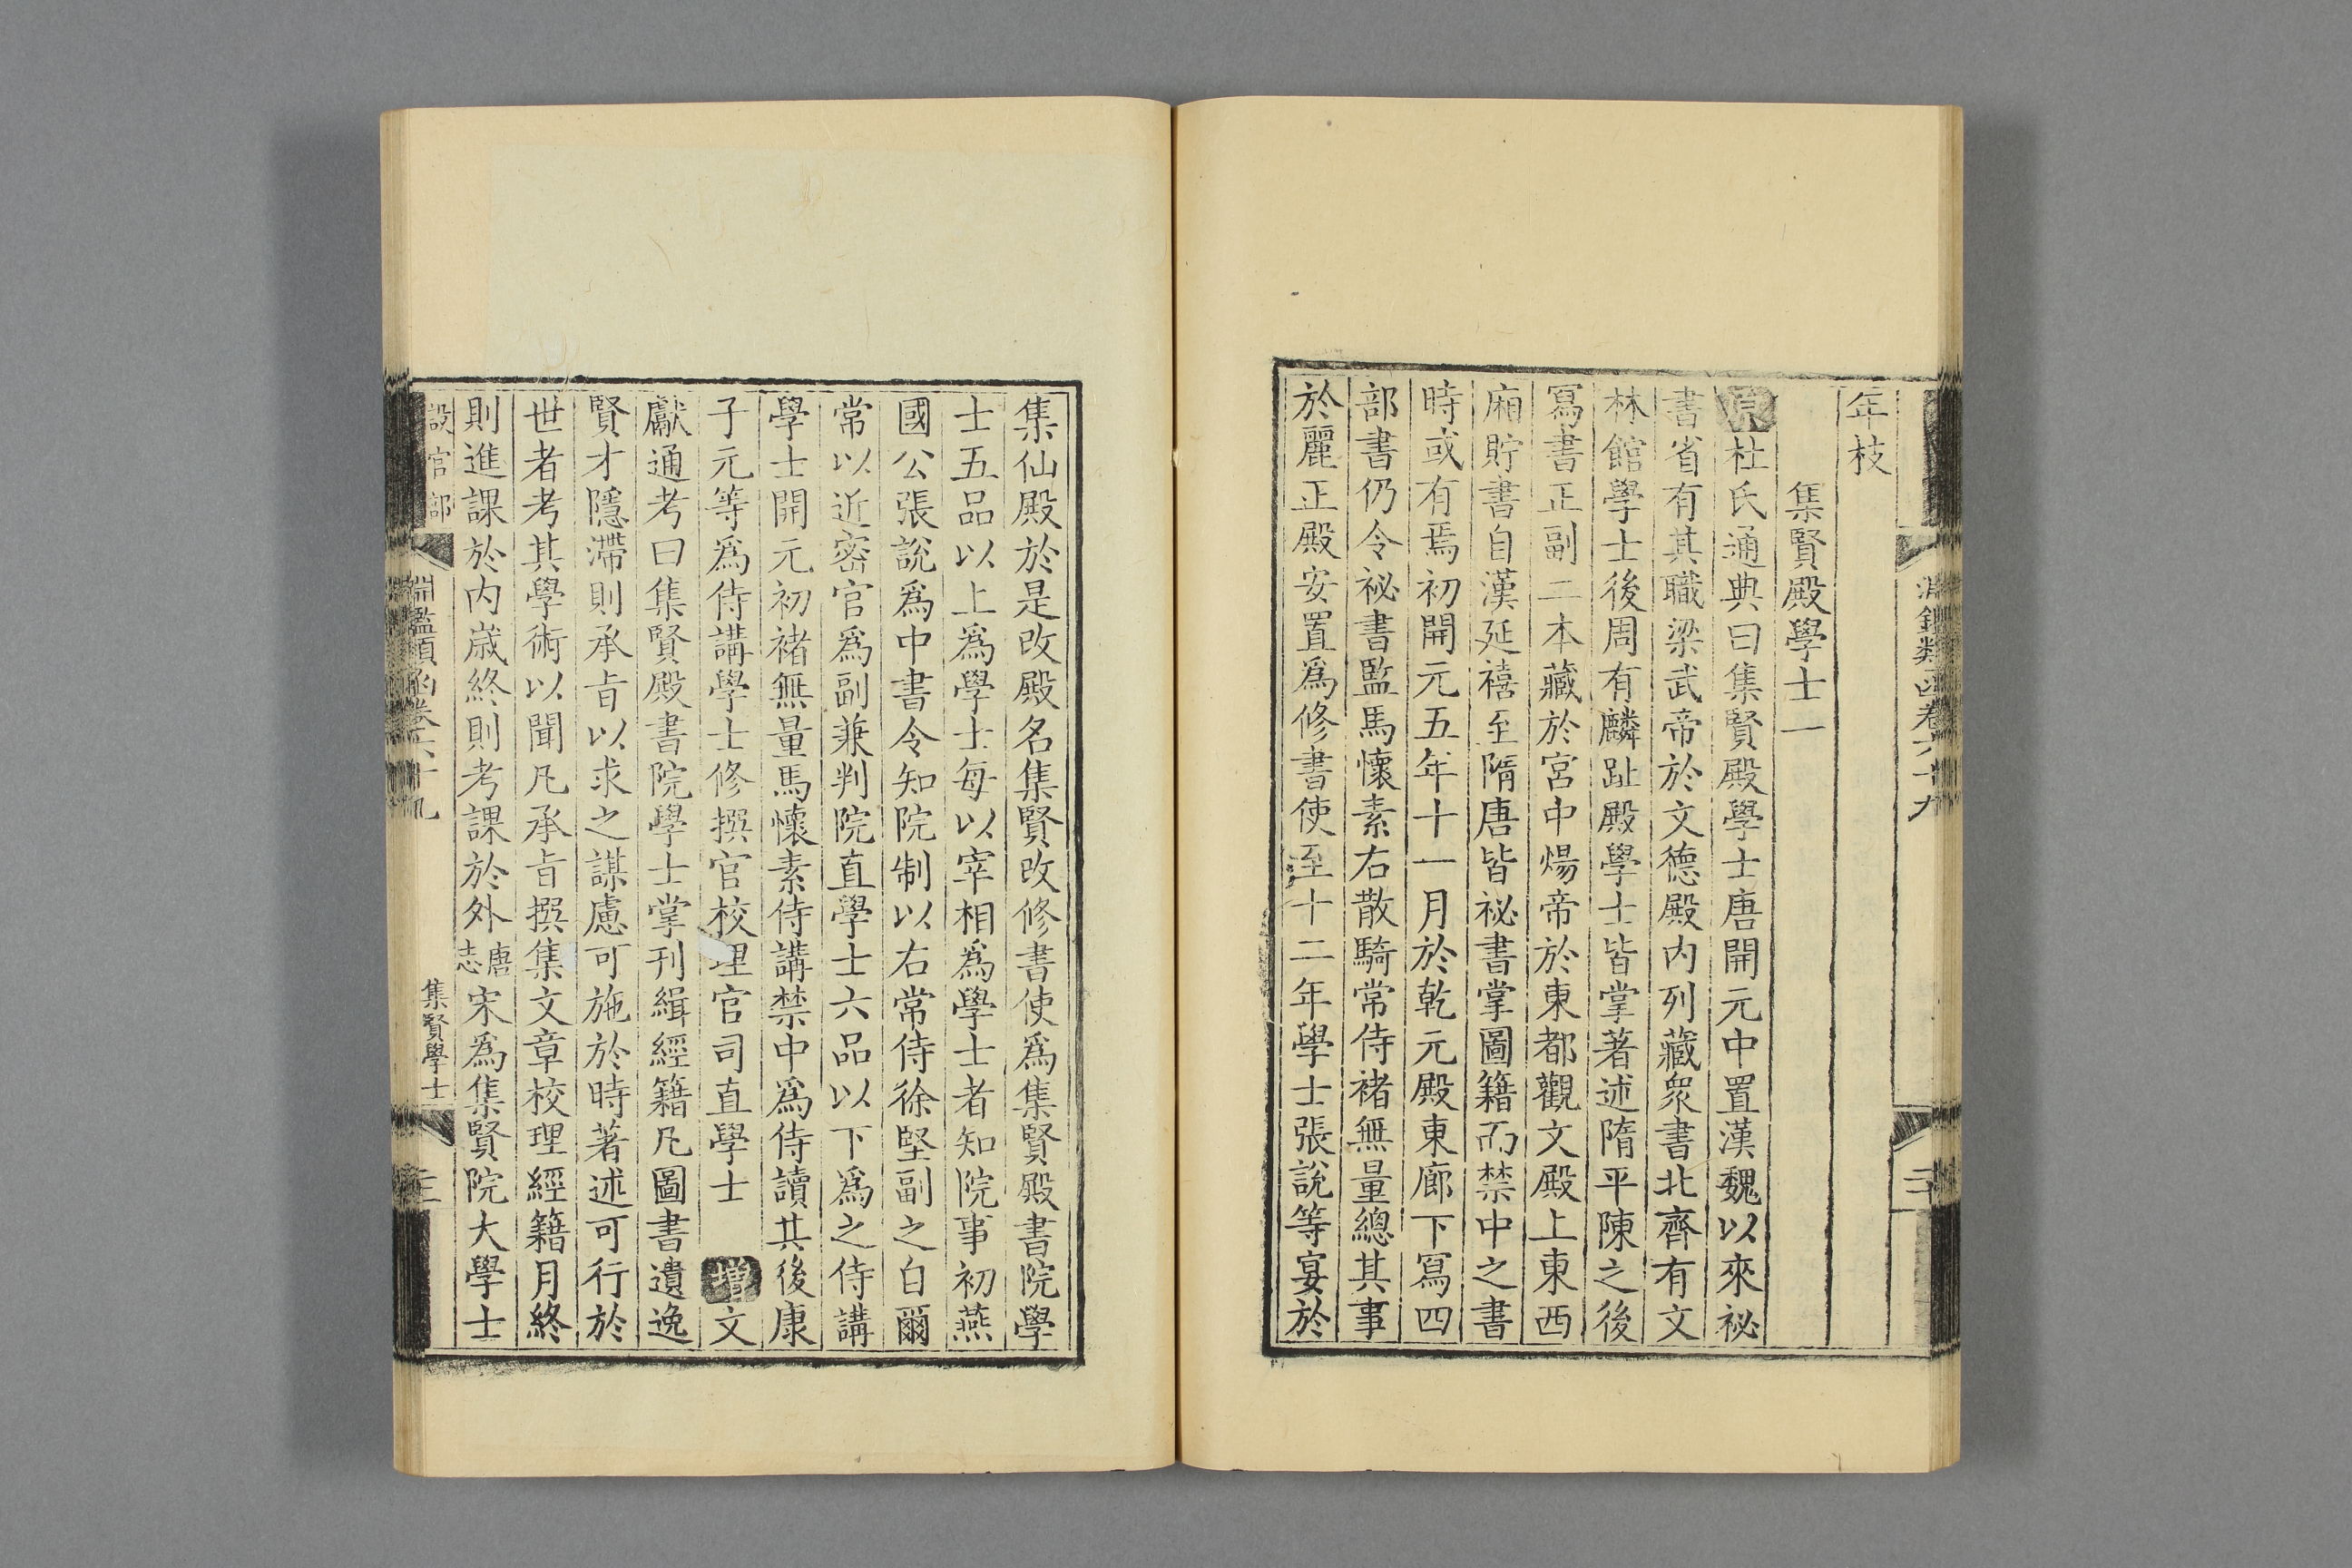 淵鑑類函卷六十九
年枝
集賢殿學士一
原杜氏通典曰集賢殿學士唐開元中置漢魏以來祕
書省有其職梁武帝於文德殿内列藏衆書北齊有文
林館學士後周有麟趾殿學士皆掌著述隋平陳之後
寫書正副二本藏於宮中煬帝於東都觀文殿上東西
廂貯書自漢延禧至隋唐皆祕書掌圖籍而禁中之書
時或有焉初開元五年十一月於乾元殿東廊下寫四
部書仍令祕書監馬懷素右散騎常侍褚無量總其事
於麗正殿安置爲修書使至十二年學士張說等宴於
集仙殿於是改殿名集賢改修書使爲集賢殿書院學
士五品以上爲學士每以宰相爲學士者知院事初燕
國公張說爲中書令知院制以右常侍徐堅副之自爾
常以近密官爲副兼判院直學士六品以下爲之侍講
學士開元初褚無量馬懷素侍講禁中爲侍讀其後康
子元等爲侍講學士修撰官校理官司直學士 增文
獻通考曰集賢殿書院學士掌刊緝經籍凡圖書遺逸
賢才隱滯則承旨以求之謀慮可施於時著述可行於
世者考其學術以聞凡承旨撰集文章校理經籍月終
則進課於内歲終則考課於外唐志宋爲集賢院大學士
設官部 淵鑑類函卷六十九 集賢學士